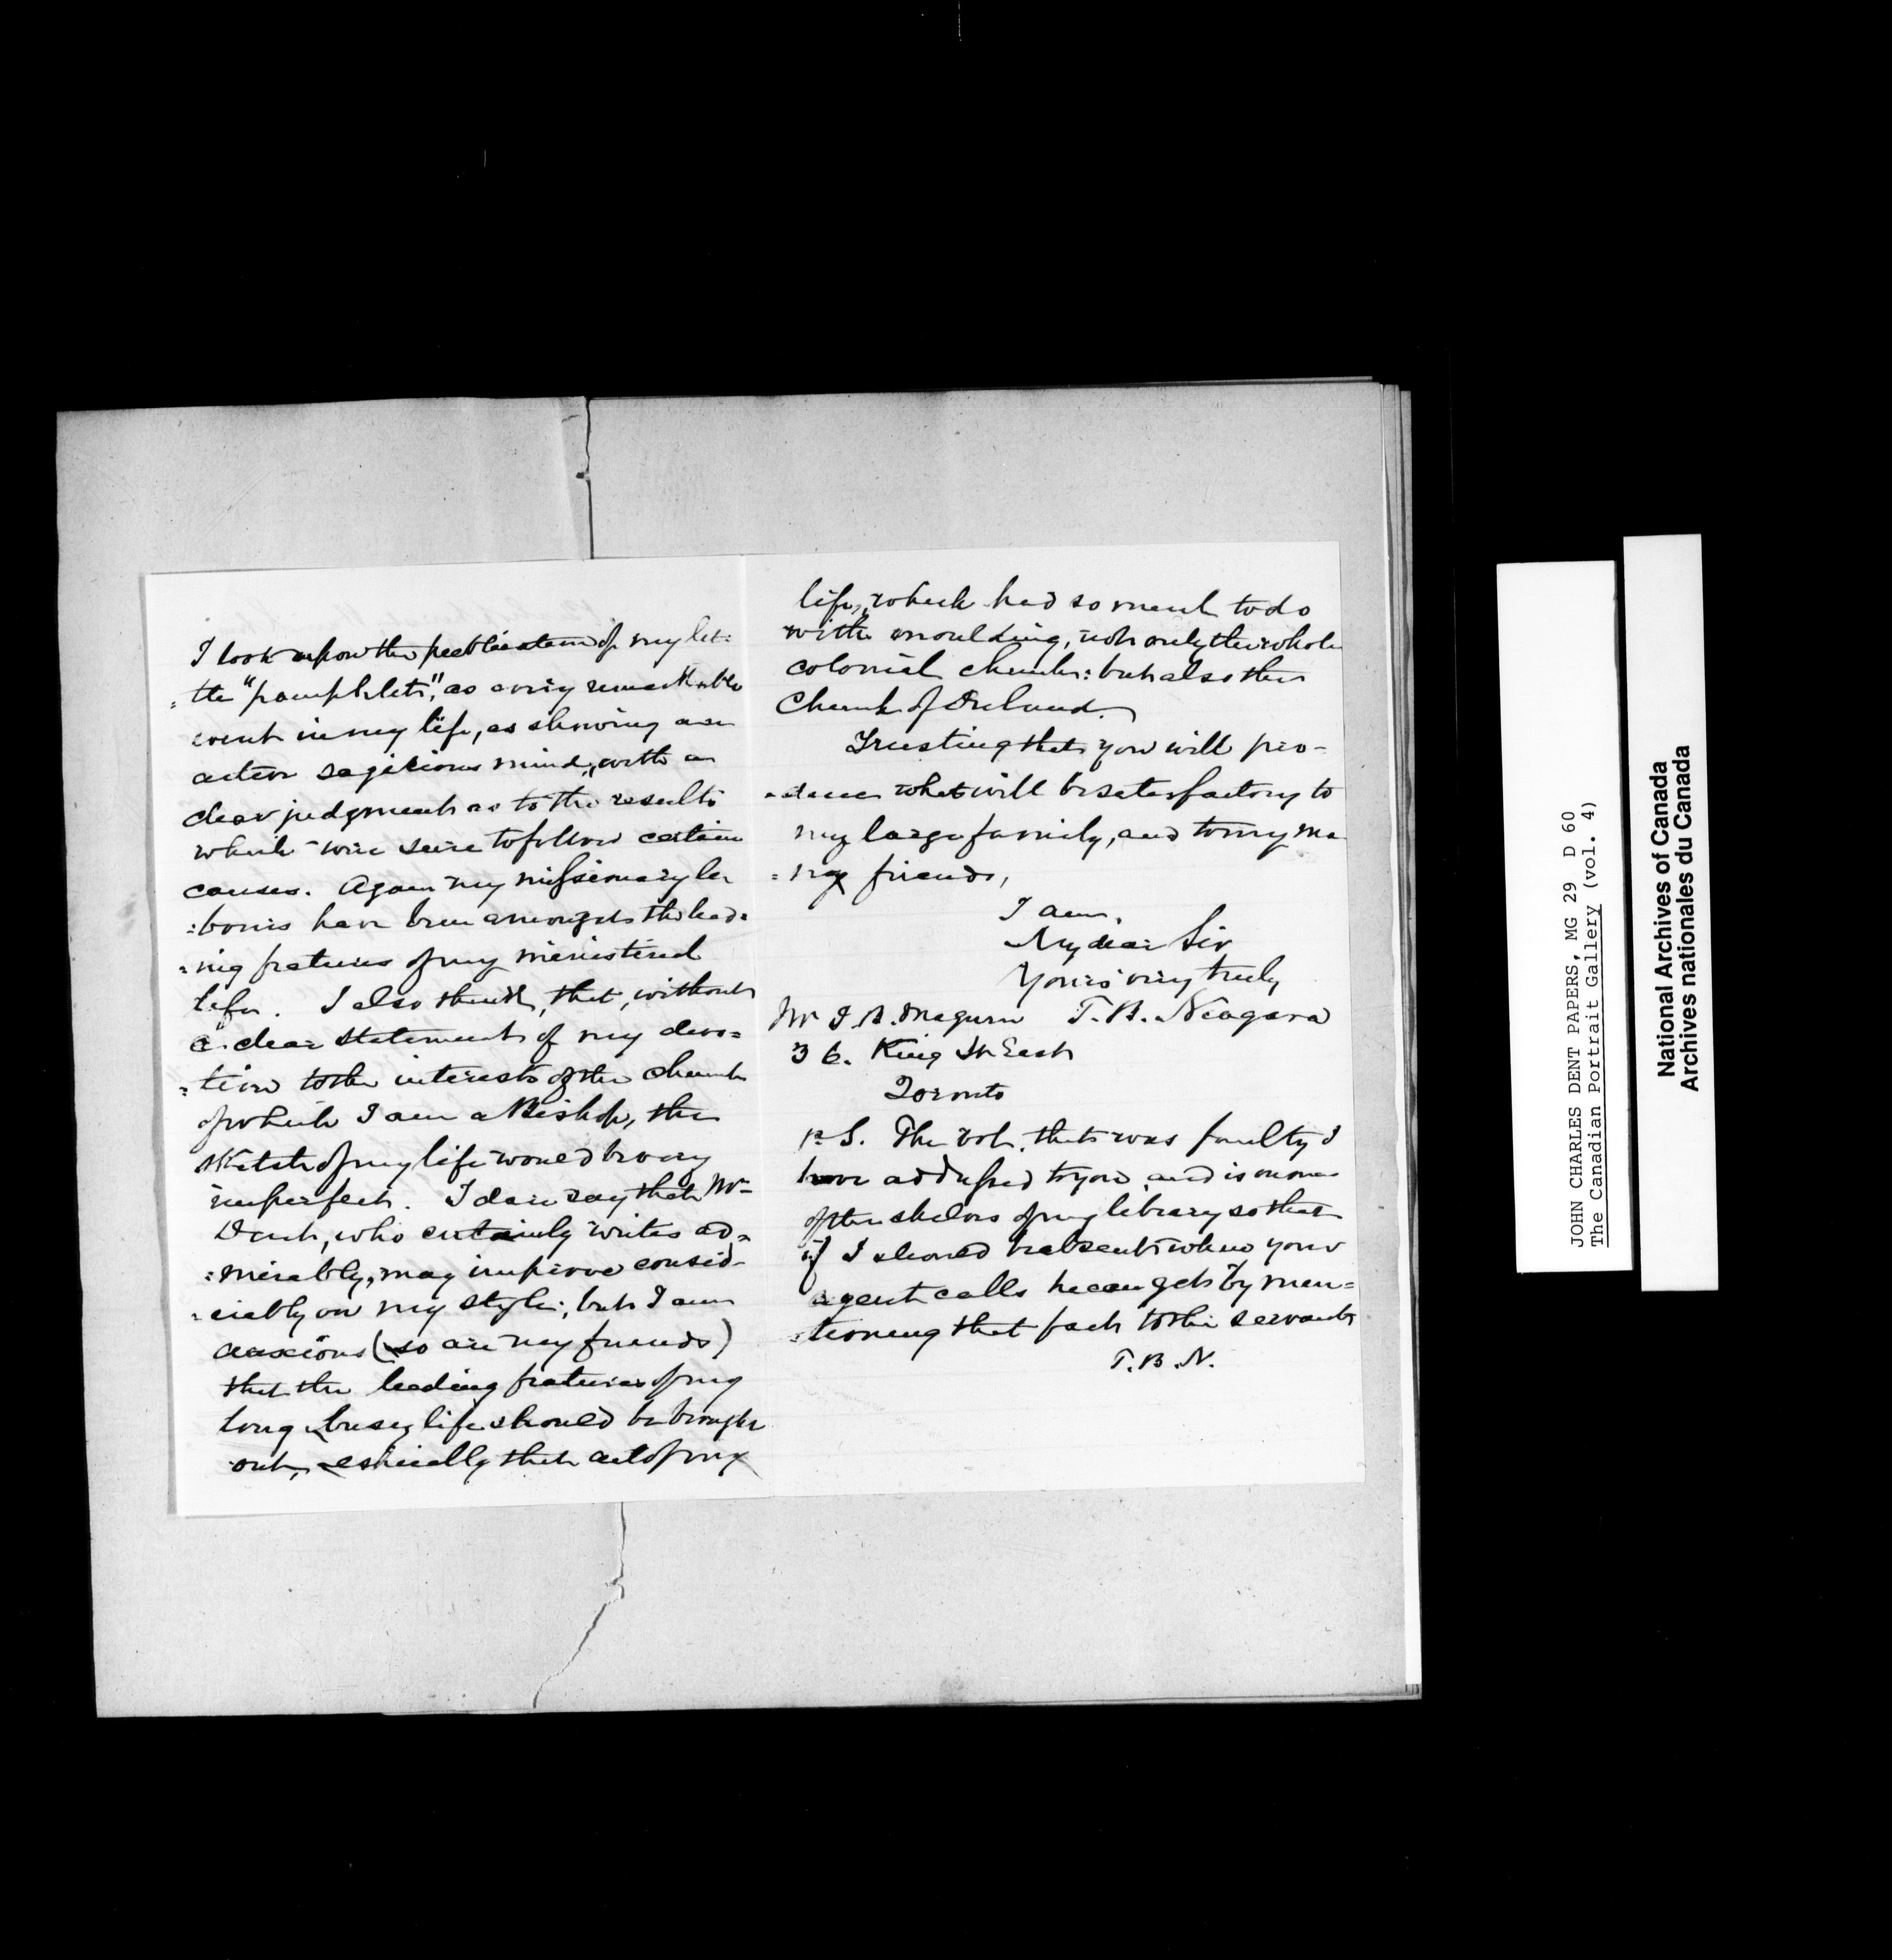 I look upon the publication of my let:
:tle "pamphlets", as a very remarkable
event in my life, as showing an
active sagicious mind, with a
clear judgment as to the results
which were sure to follow certain
causes. Again my missionary la
:bours have been amongst the lead:
:ing features of my ministerial
life. I also think, that, without
a clear statement of my devo=
:tion to the interests of the Church
of which I am a Bishop, the
sketch of my life would be very
imperfect. I dare say that Mr
Dent, who certainly writes ad=
:mirably, may improve consid-
:erably on my style; but I am
anxious (so are my friends)
that the leading features of my
long busy life should be brought
out, especially that act of my
life, which had so much to do
with moulding, not only the whole
colonial church: but also the
Church of Ireland.
Trusting that you will pro-
-duce what will be satisfactory to
my large family, and to my ma
:ny friends,
I am,
My dear Sir
Yours very truly
Mr J. B. Magurn T. B. Niagara
36. King St East
Toronto
P.S. The vol. that was faulty I
have addressed to you and is on one
of the shelves of my library so that
if I should be absent when your
agent calls he can get by men=
:tioning that fact to the servants
T.B.N.
JOHN CHARLES DENT PAPERS, MG 29 D 60
The Canadian Portrait Gallery (vol. 4)
National Archives of Canada
Archives nationales du Canada